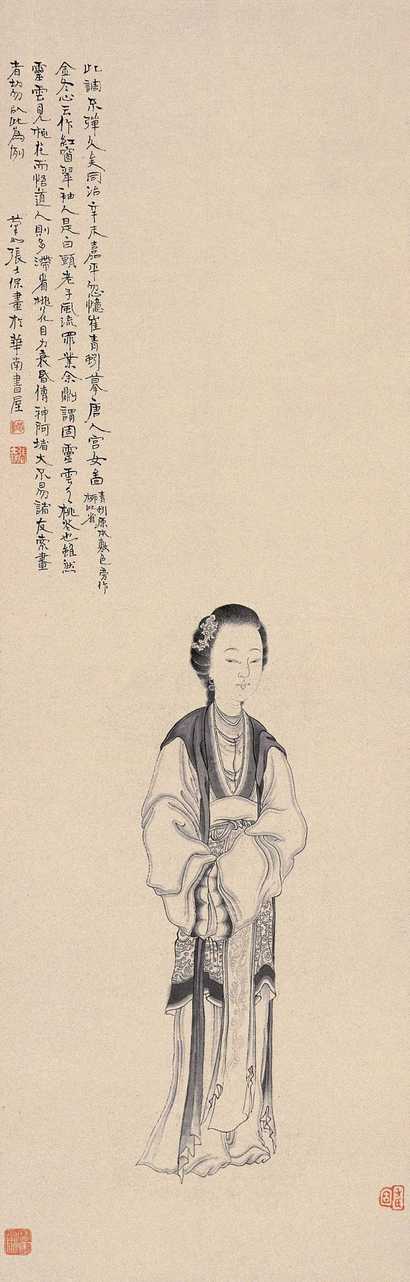 此調不彈久矣同治辛未嘉平忽憶崔青蚓摹唐人宮女圖
青蚓原本敷色旁作
桃此省
金冬心云作紅窗翠袖人是白頭老子風流罪業余謂固靈雲之桃花也雖然
靈雲見桃花而悟道人則多滯桃花目力衰昏傳神阿堵大不易諸友索畫
者勿以此為例
菊如張士保畫於華南書屋